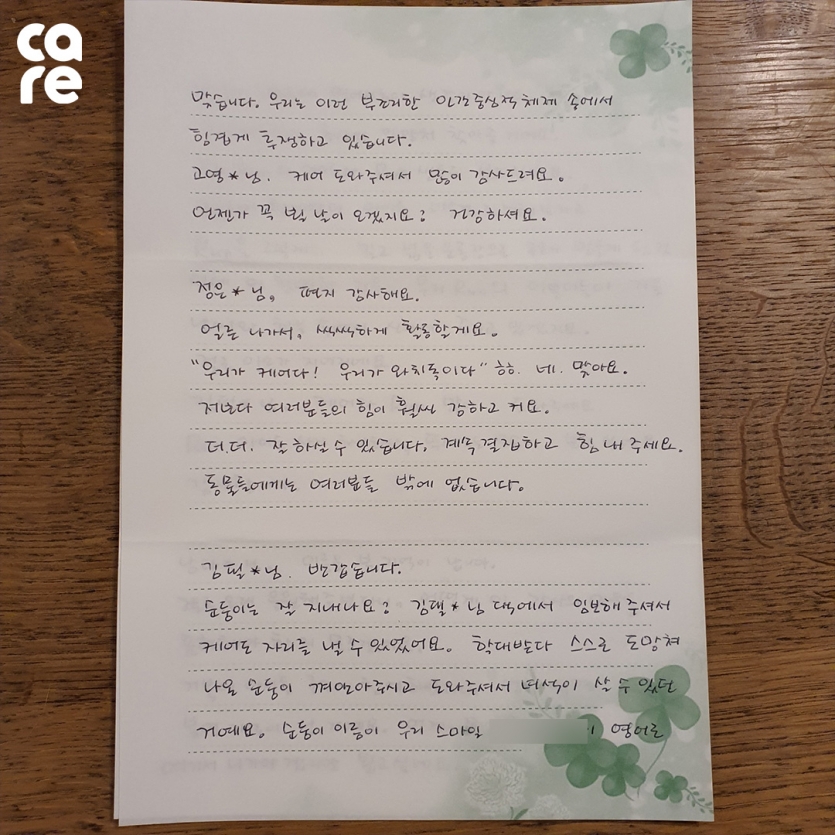 care
맞습니다. 우리는 이런 부조리한 인간중심적 체제 속에서
힘겹게 투쟁하고 있습니다.
고영*님. 케어 도와주셔서 많이 감사드려요.
언젠가 꼭 뵐 날이 오겠지요? 건강하셔요.
정은*님, 편지 감사해요.
얼른 나가서, 씩씩하게 활동할게요.
"우리가 케어다! 우리가 와치독이다" ㅎㅎ. 네. 맞아요.
저보다 여러분들의 힘이 훨씬 강하고 커요.
더.더. 잘 하실 수 있습니다. 계속 결집하고 힘 내 주세요.
동물들에게는 여러분들 밖에 없습니다.
김필*님. 반갑습니다.
순둥이는 잘 지내나요? 김필*님 댁에서 임보해 주셔서
케어도 자리를 낼 수 있었어요. 학대받다 스스로 도망쳐
나온 순둥이 껴안아주시고 도와주셔서 녀석이 살 수 있던
거예요. 순둥이 이름이 우리 스마일 이 영어로